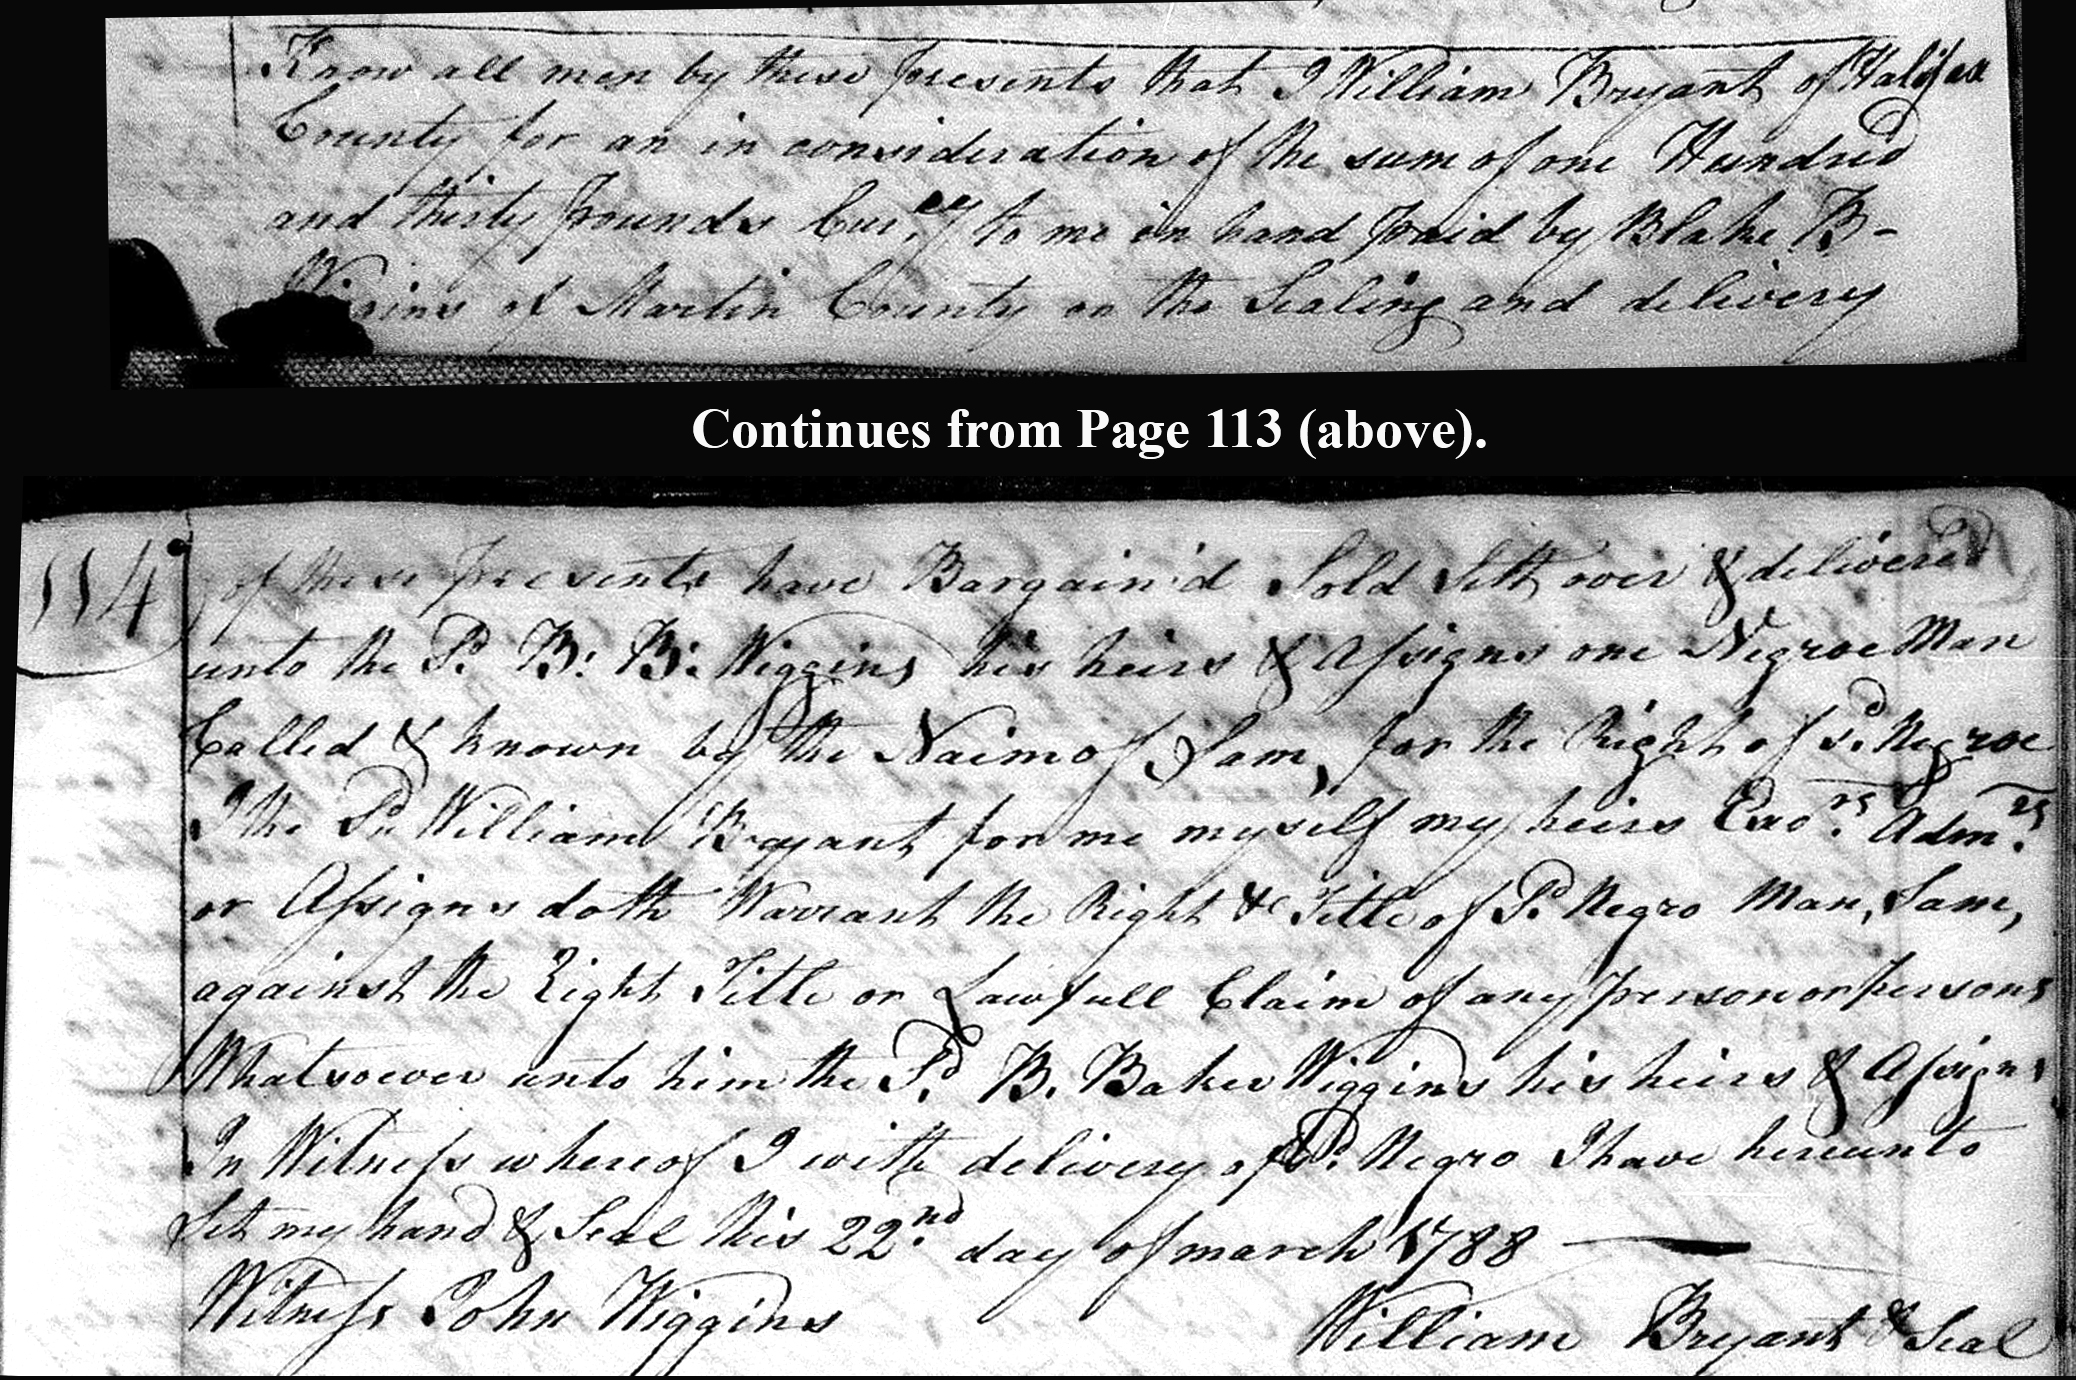 Know all men by these presents that I William Bryant of Halifax
County for an in consideration of the sum of one Hundred
and thirty pounds Cur.cy to me in hand paid by Blake B-
Wiggins of Martin County on the Sealing and delivery
Continues from Page 113 (above).
114
of these presents have Bargain'd Sold Sett over & delivered
unto the Sd. B: B: Wiggins his heirs & Assigns one Negroe Man
Called & known by the Naim of Sam, for the Right of sd. Negroe
I the Sd. William Bryant for me myself my heirs Exo.rs Adm.rs
or Assigns doth Warrant the Right & Title of Sd. Negro Man, Sam,
against the Right Title or Lawfull Claim of any person or persons
Whatsoever unto him the Sd. B. Baker Wiggins his heirs & Assigns
In Witness whereof I with delivery of Sd. Negro I have hereunto
Set my hand & Seal this 22nd. day of march 1788
Witness John Wiggins
William Bryant & Seal